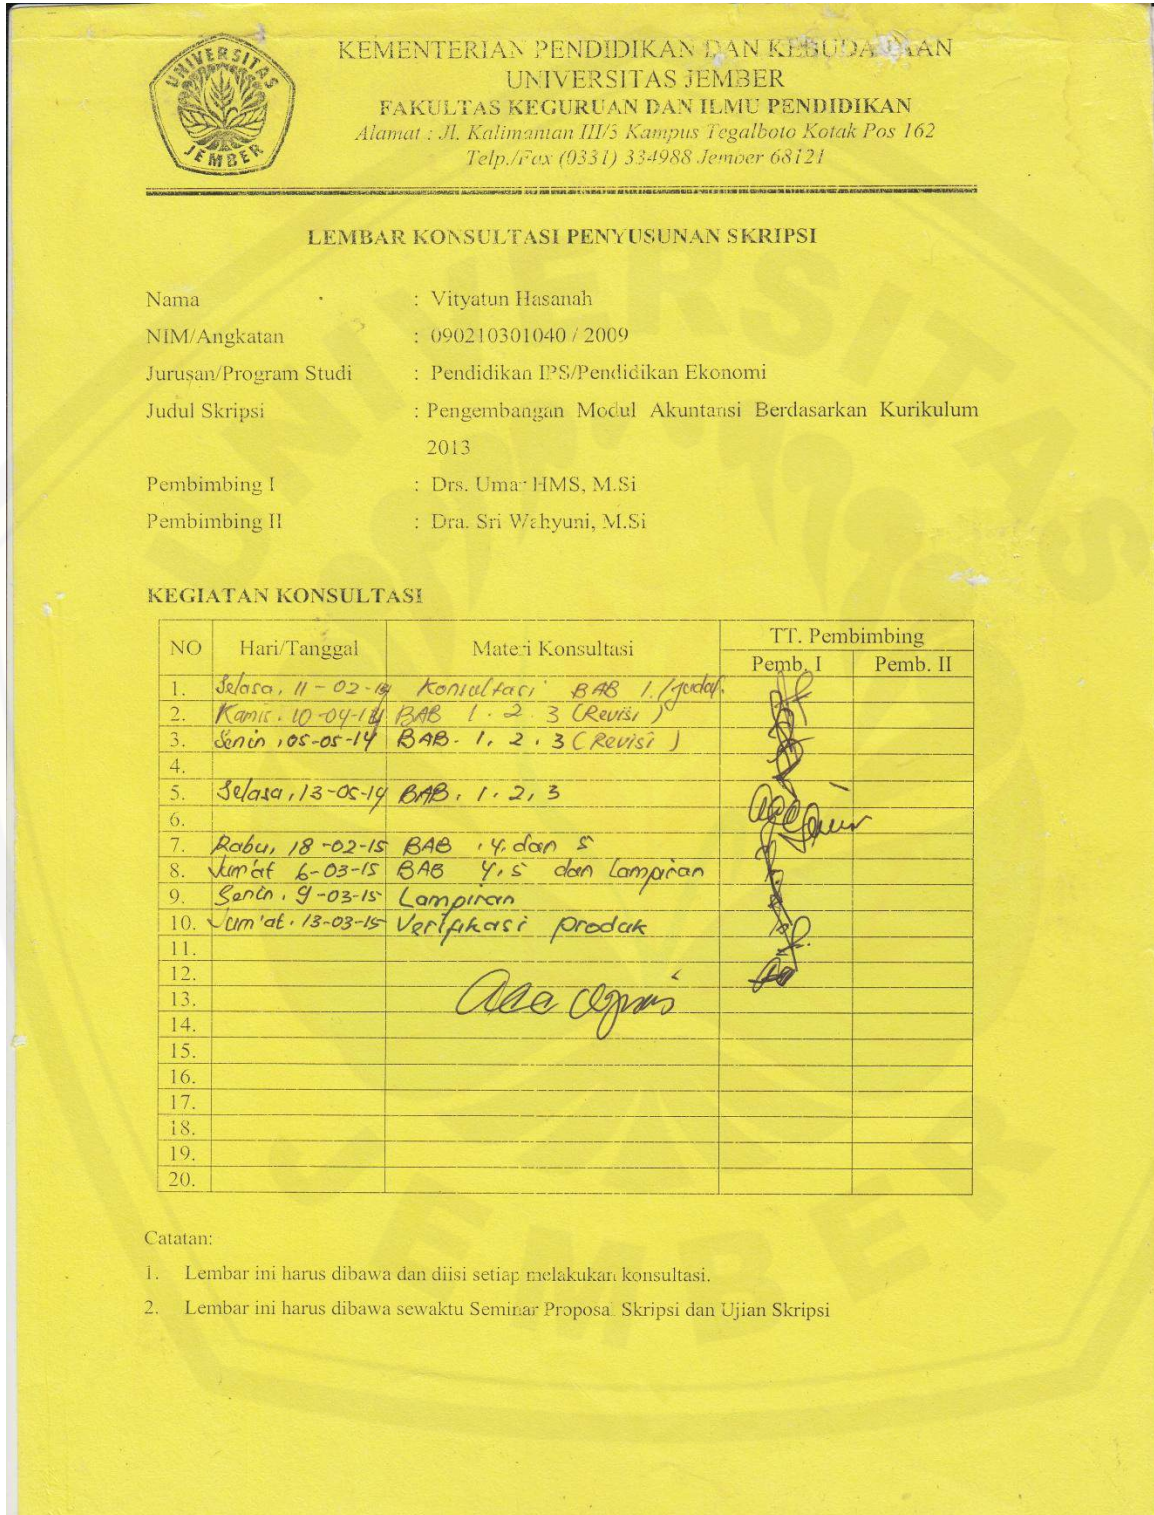 UNIVERSITAS
JEMBER
KEMENTERIAN PENDIDIKAN DAN KEBUDAYAAN
UNIVERSITAS JEMBER
FAKULTAS KEGURUAN DAN ILMU PENDIDIKAN
Alamat : Jl. Kalimantan III/3 Kampus Tegalboto Kotak Pos 162
Telp./Fax (0331) 334988 Jember 68121
LEMBAR KONSULTASI PENYUSUNAN SKRIPSI
Nama : Vityatun Hasanah
NIM/Angkatan : 090210301040 / 2009
Jurusan/Program Studi : Pendidikan IPS/Pendidikan Ekonomi
Judul Skripsi : Pengembangan Modul Akuntansi Berdasarkan Kurikulum
2013
Pembimbing I : Drs. Umar HMS, M.Si
Pembimbing II : Dra. Sri Wahyuni, M.Si
KEGIATAN KONSULTASI
NO Hari/Tanggal Materi Konsultasi TT. Pembimbing
Pemb. I Pemb. II
1. Selasa, 11-02-14 Konsultasi BAB 1./judul.
2. Kamis. 10-04-14 BAB 1. 2. 3 (Revisi)
3. Senin, 05-05-14 BAB. 1, 2, 3 (Revisi)
4.
5. Selasa, 13-05-14 BAB. 1. 2, 3
6.
7. Rabu, 18-02-15 BAB .4. dan 5
8. Jum'at 6-03-15 BAB 4,5 dan Lampiran
9. Senin, 9-03-15 Lampiran
10. Jum'at. 13-03-15 Verifikasi produk
11.
12.
13.
14.
15.
16.
17.
18.
19.
20.
Catatan:
1. Lembar ini harus dibawa dan diisi setiap melakukan konsultasi.
2. Lembar ini harus dibawa sewaktu Seminar Proposal Skripsi dan Ujian Skripsi
UNIVERSITAS
JEMBER